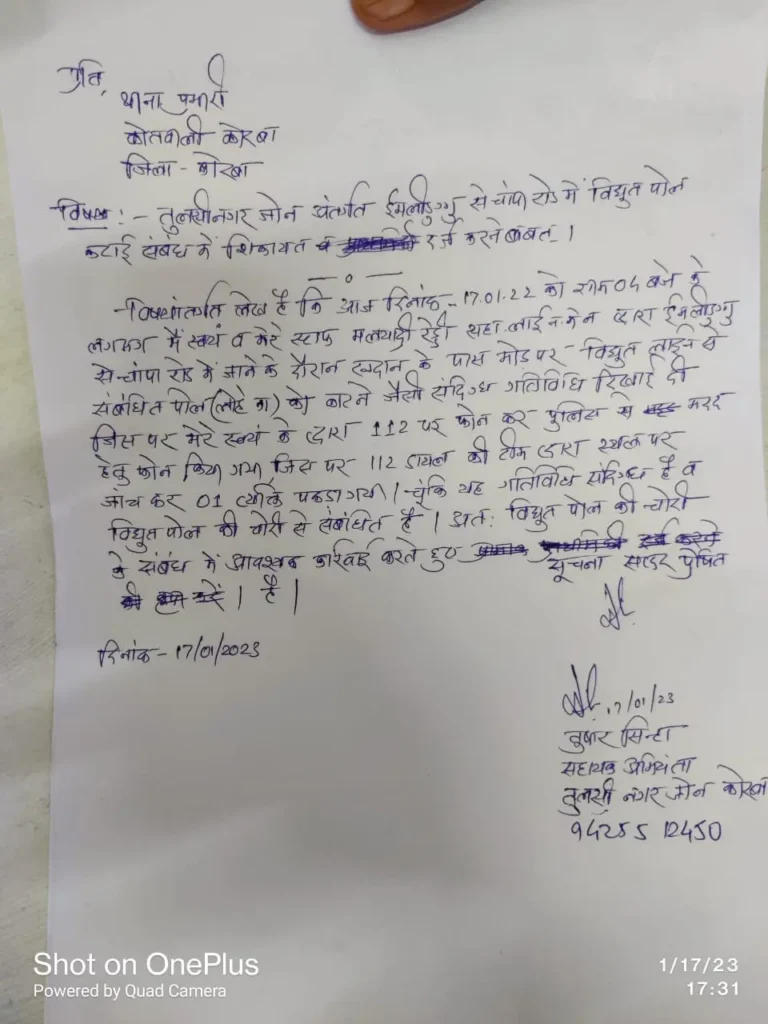 प्रति,
थाना प्रभारी
कोतवाली कोरबा
जिला - कोरबा
विषय :- तुलसीनगर जोन अंतर्गत ईमलीडुग्गु से चांपा रोड में विद्युत पोल
कटाई संबंध में शिकायत व दर्ज करने बाबत् ।
— o —
विषयांतर्गत लेख है कि आज दिनांक - 17.01.22 को शाम 04 बजे के
लगभग मैं स्वयं व मेरे स्टाफ रेड्डी सहा. लाईनमेन द्वारा ईमलीडुग्गु
से चांपा रोड में जाने के दौरान के पास मोड पर - विद्युत लाईन से
संबंधित पोल (लोहे का) को काटने जैसी संदिग्ध गतिविधि दिखाई दी
जिस पर मेरे स्वयं के द्वारा 112 पर फोन कर पुलिस से मदद
हेतु फोन किया गया जिस पर 112 डायल की टीम द्वारा स्थल पर
जांच कर 01 व्यक्ति पकडा गया । चूंकि यह गतिविधि संदिग्ध है व
विद्युत पोल की चोरी से संबंधित है । अतः विद्युत पोल की चोरी
के संबंध में आवश्यक कार्रवाई करते हुए
सूचना सादर प्रेषित
है ।
दिनांक - 17/01/2023
17/01/23
तुषार सिन्हा
सहायक अभियंता
तुलसी नगर जोन कोरबा
94255 12450
Shot on OnePlus
Powered by Quad Camera
1/17/23
17:31